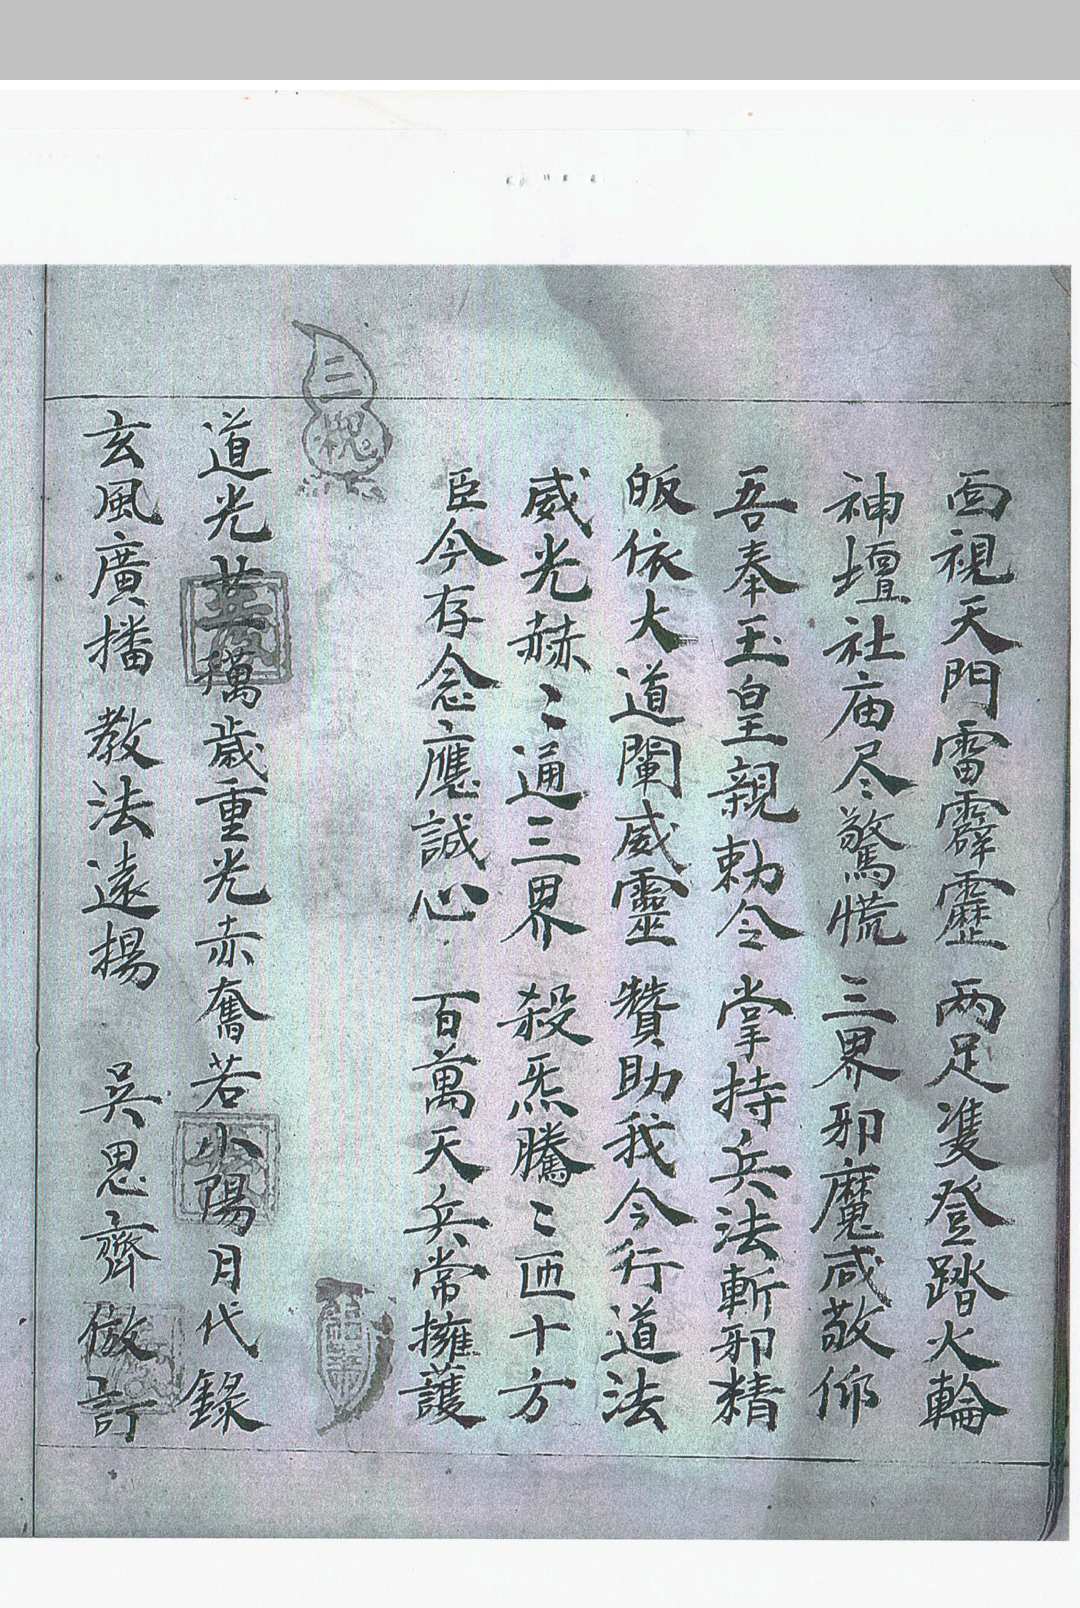 面視天門雷霹靂 两足雙登踏火輪
神壇社庙尽驚慌 三界邪魔咸敬仰
吾奉玉皇親勅令 掌持兵法斬邪精
皈依大道闡威靈 贊助我今行道法
威光赫〻通三界 殺炁騰〻迊十方
臣今存念應誠心 百萬天兵常擁護
三
道光廿一穐歲重光赤奮若小陽月代錄
玄風廣播 教法遠揚 吳思齊倣訂